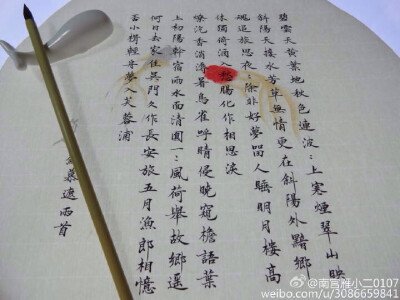 碧雲天黃葉地秋色連波:上寒煙翠山映
斜陽天接水芳草無情更在斜陽外黯鄉
魂追旅思夜:除非好夢留人睡明月樓高
休獨倚酒入愁腸化作相思淚
燎沈香消溽暑鳥雀呼晴侵曉窺檐語葉
上初陽幹宿雨水面清圓一:風荷舉故鄉遙
何日去家住吳門久作長安旅五月漁郎相憶
否小楫輕舟夢入芙蓉浦
慕遮兩首
@南宫雅小二0107
weibo.com/u/3086659841